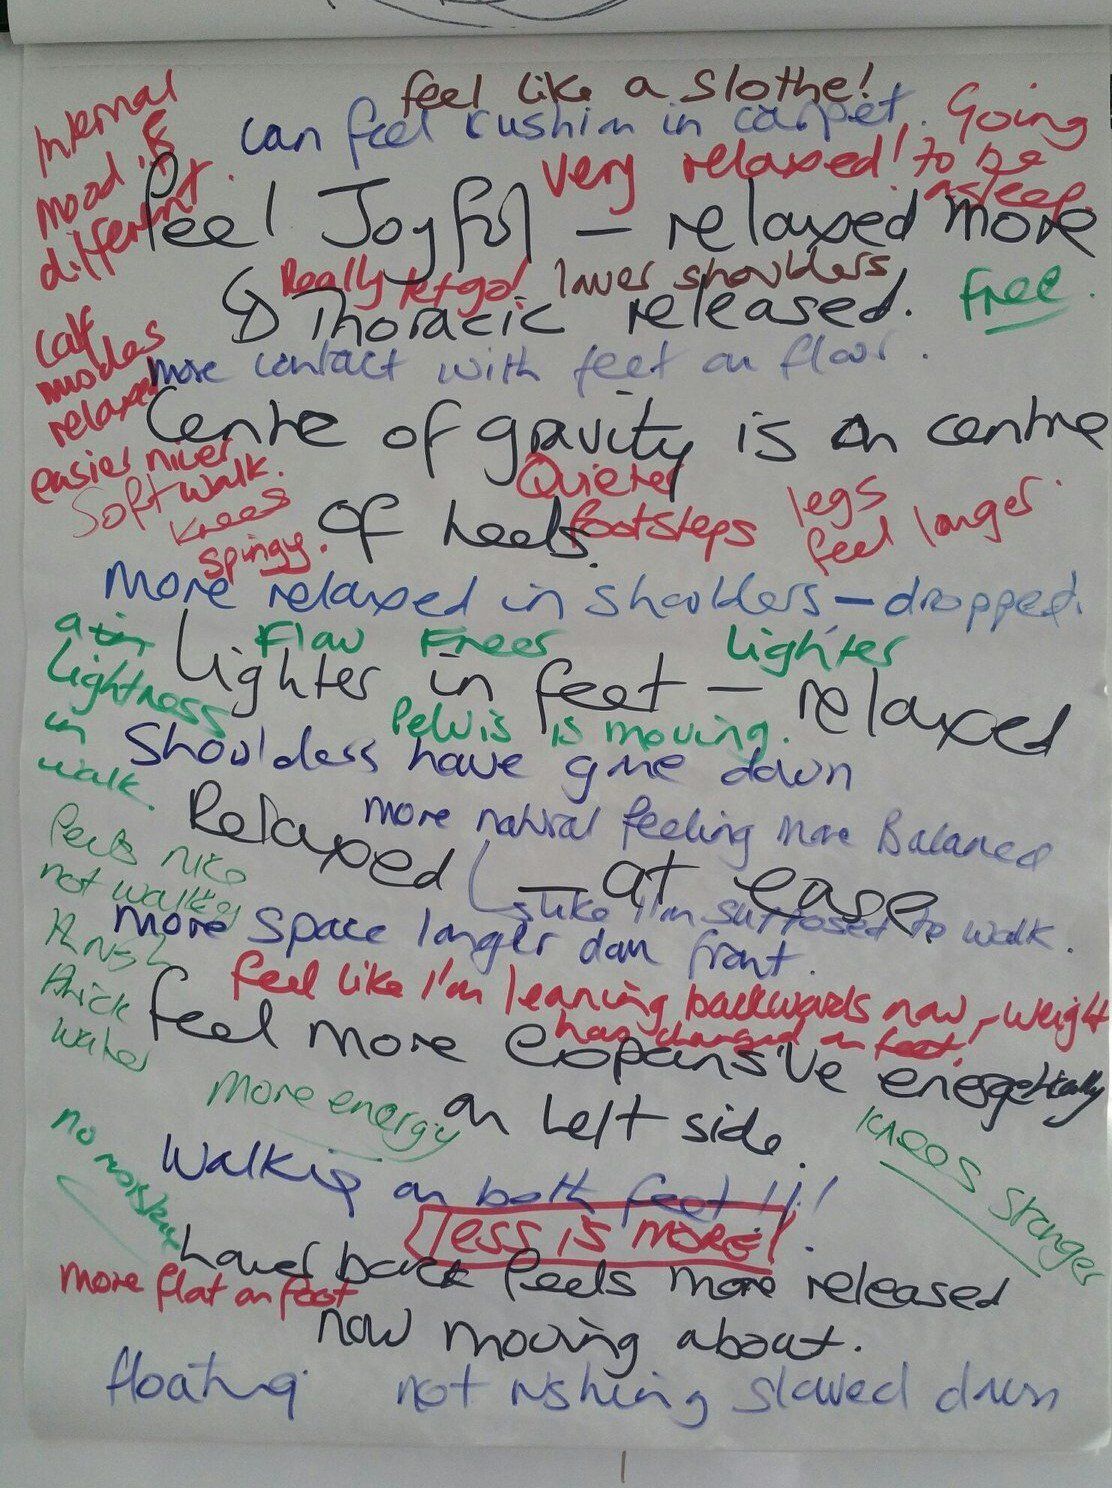 feel like a slothe!
can feel cushion in carpet.
Going to be asleep.
Internal mood is different.
very relaxed!
feel Joyful – relaxed more
Really let go!
lower shoulders
Free
Thoracic released.
calf
relaxed
more contact with feet on floor.
Centre of gravity is on centre
easier nicer
Soft walk.
Quieter
footsteps
legs
feel longer.
knees
spingy.
of heels.
more relaxed in shoulders – dropped.
Flow
Freer
Lighter
Lightness
in
walk.
Lighter in feet – relaxed
Pelvis is moving.
Shoulders have gone down
more natural feeling more Balanced
Relaxed – at ease
like I'm supposed to walk.
Feels nice
not walking
thick
water
more space longer down front.
feel like I'm leaning backwards now, – weight
has changed on feet.
feel more expansive energetically
More energy
on left side.
knees stronger
Walking on both feet !!!
Less is MORE!
Lower back feels more released
more flat on foot
now moving about.
floating.
not rushing slowed down